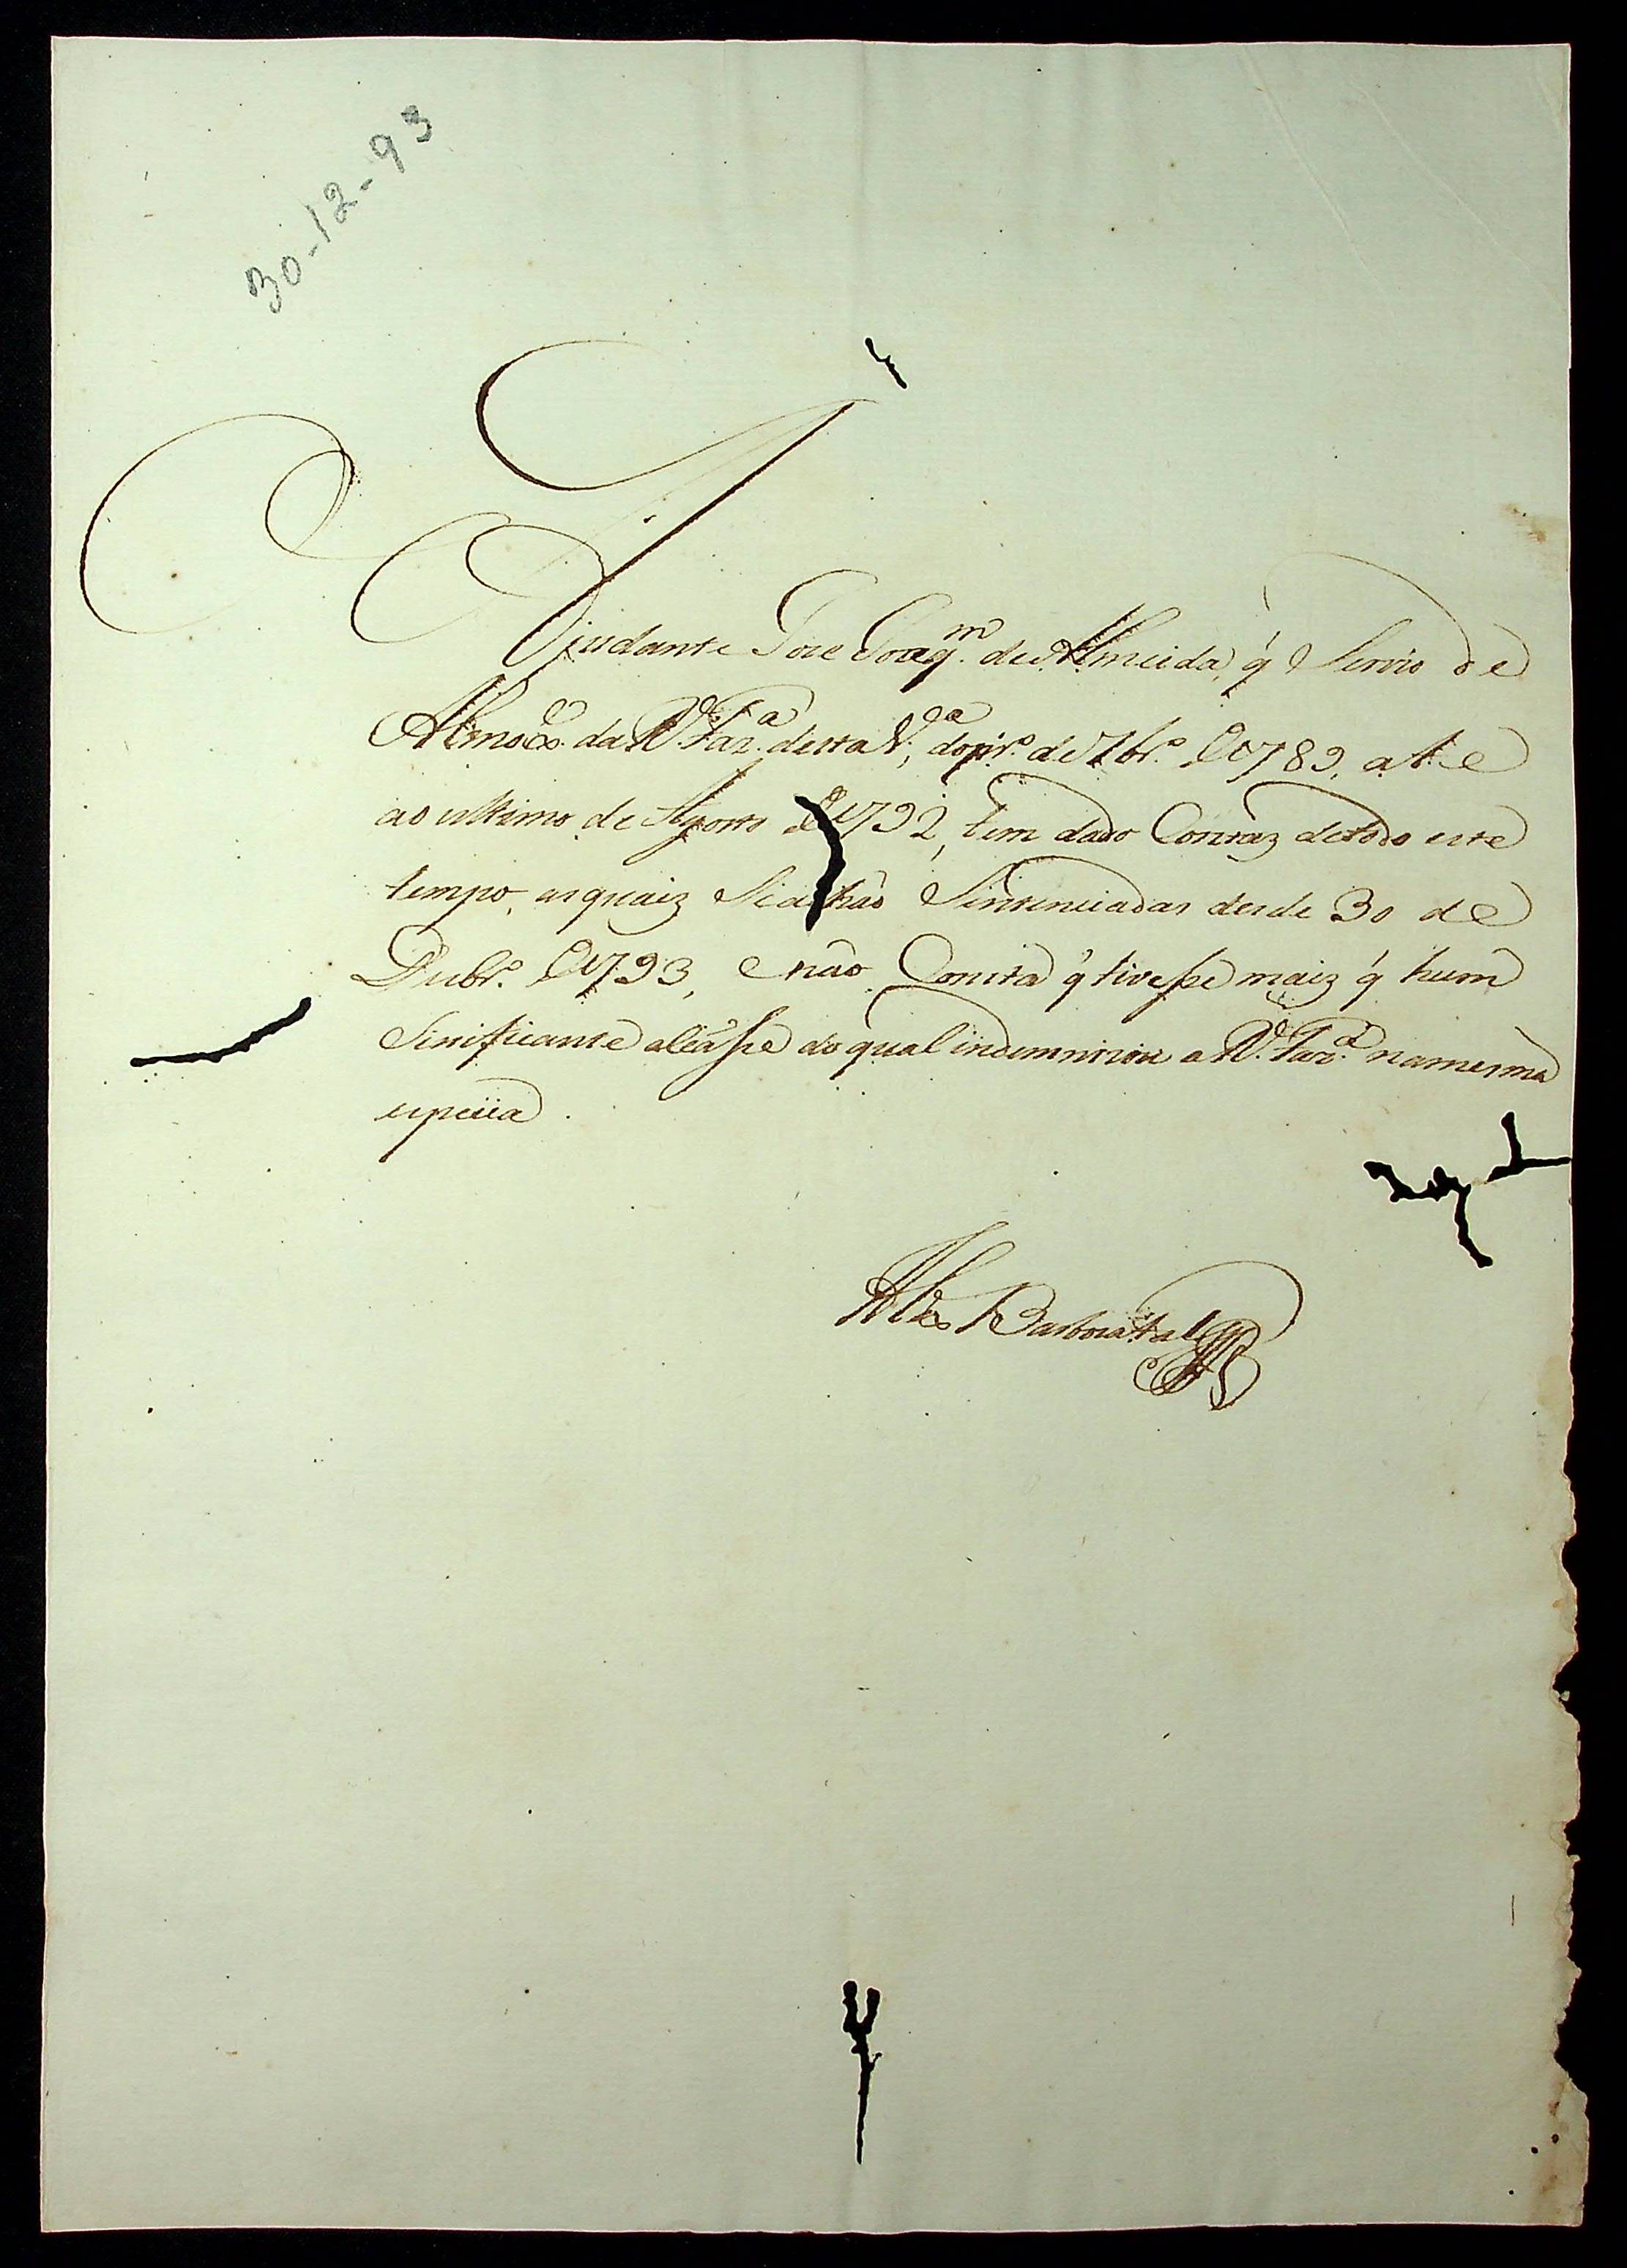 30-12-93
Ajudante Jose Joaq.m de Almeida, q̃ Servio de
Almox.e da R.l Faz.a desta V.a, do pr.o de 7br.o de 1789, athe
ao ultimo de Agosto de 1792, tem dado Contaz de todo este
tempo, as quaiz Se achaõ Sentenciadas desde 30 de
Dzbr.o de 1793, e naõ Consta q̃ tivesse maiz q̃ hum
Sinificante alcanse do qual indemnizou a R.l Faz.a na mesma
especia.
Barbosa